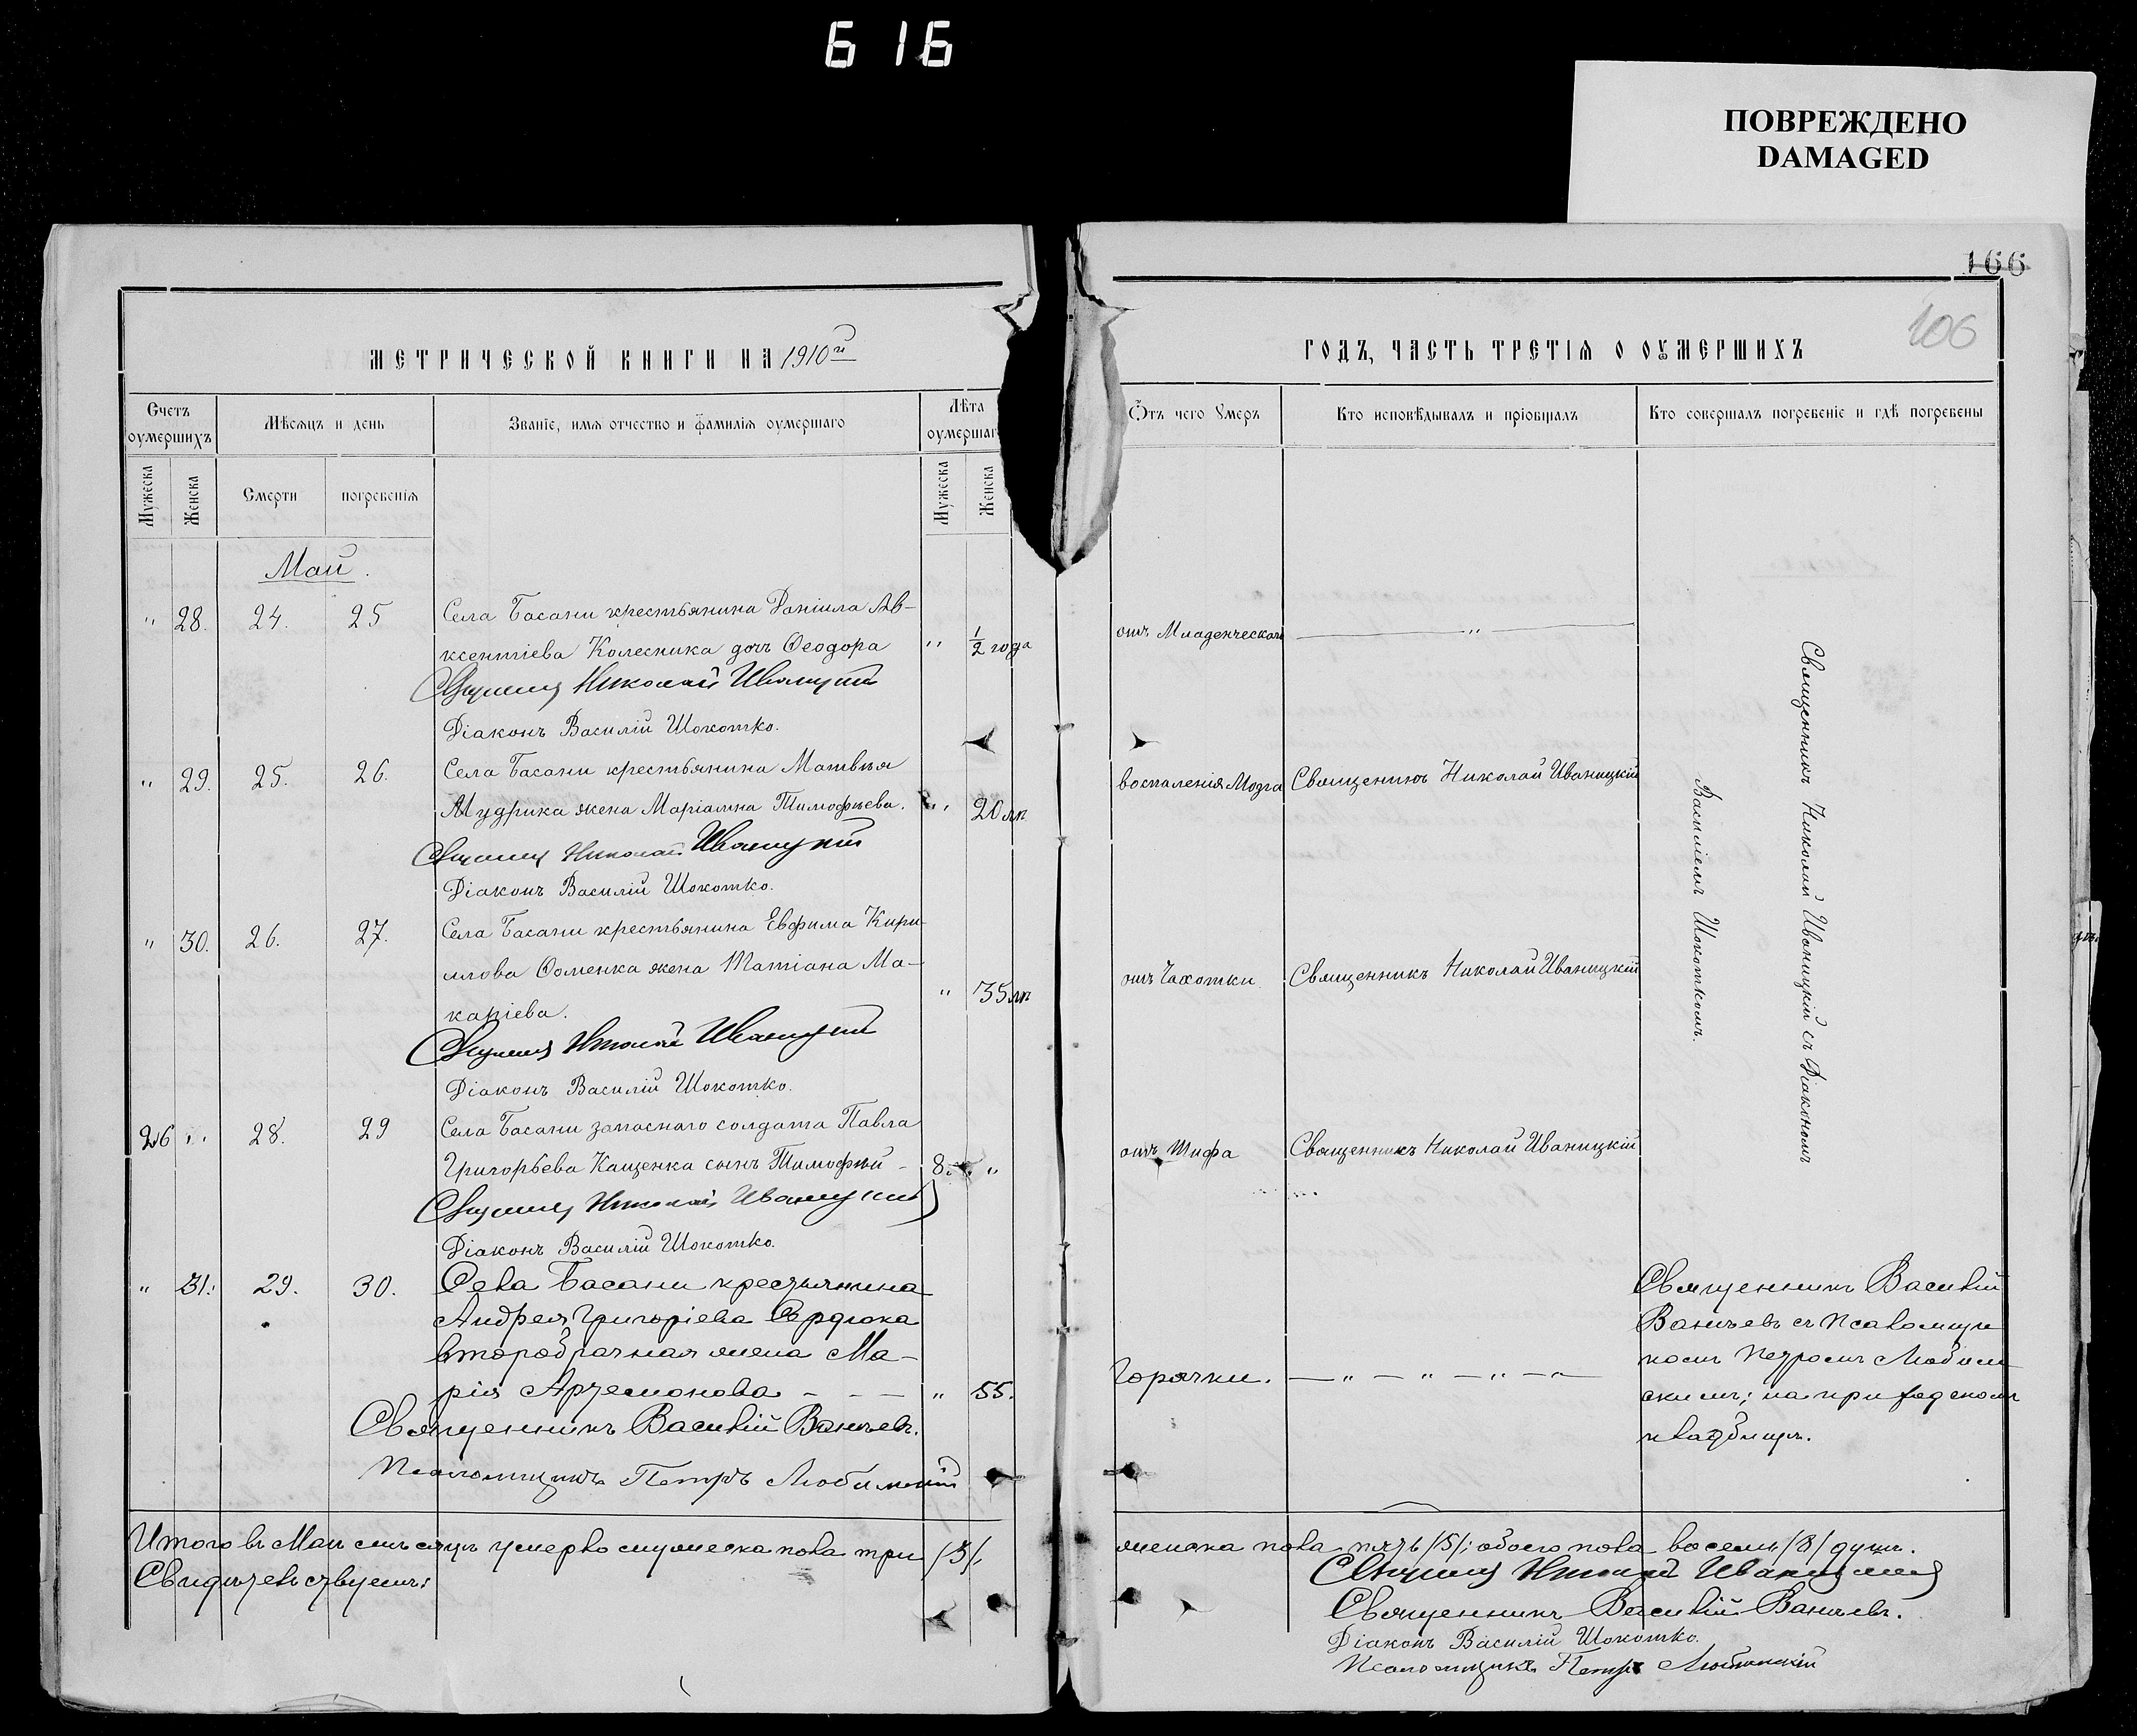 616
ПОВРЕЖДЕНО
DAMAGED
166
106
МЕТРИЧЕСКОЙ КНИГИ НА 1910й
ГОДЪ, ЧАСТЬ ТРЕТІЯ О ОУМЕРШИХЪ
Счетъ оумершихъ
Мѣсяцъ и день
Званіе, имя отчество и фамилія оумершаго
Лѣта оумершаг
Отъ чего Умеръ
Кто исповѣдывалъ и пріобщалъ
Кто совершалъ погребеніе и гдѣ погребены
Мужеска
Женска
Смерти
погребенія
Мужеска
Женска
Май.
" 28. 24. 25 Села Басани крестьянина Даніила Ав-
ксентіева Колесника дочь Ѳеодора " 1/2 года отъ Младенческой — " —
Священникъ Николай Иваницкій
Діаконъ Василій Шокотко.
" 29. 25. 26. Села Басани крестьянина Матвѣя
Мудрика жена Маріамна Тимофѣева. " 20 лѣ воспаленія Мозга Священникъ Николай Иваницкій
Священникъ Николай Иваницкій
Діаконъ Василій Шокотко.
" 30. 26. 27. Села Басани крестьянина Евфима Кири-
ллова Ѳоменка жена Татіана Ма-
каріева. " 35 лѣ отъ Чахотки Священникъ Николай Иваницкій
Священникъ Николай Иваницкій
Діаконъ Василій Шокотко.
26 " 28. 29 Села Басани запаснаго солдата Павла
Григорьева Кащенка сынъ Тимофѣй - 8. " отъ Тифа Священникъ Николай Иваницкій
Священникъ Николай Иваницкій
Діаконъ Василій Шокотко.
Священникъ Николай Иваницкій съ Діакономъ
Василіемъ Шокоткомъ.
" 31. 29. 30. Села Басани крестьянина
Андрея Григоріева Сердюка
второбрачная жена Ма-
рія Артемонова - - - " 55. Горячки. — " — " — " — " —
Священникъ Василій
Священникъ Василій
съ Псаломщи
комъ Петромъ
скимъ; на приходскомъ
кладбищѣ.
Псаломщикъ Петръ
Итого въ Маѣ мѣсяцѣ умерло мужеска пола три /3/,
женска пола пять /5/; обоего пола восемь /8/ душъ.
Свидѣтельствуемъ:
Священникъ Николай Иваницкій
Священникъ Василій
Діаконъ Василій Шокотко.
Псаломщикъ Петръ